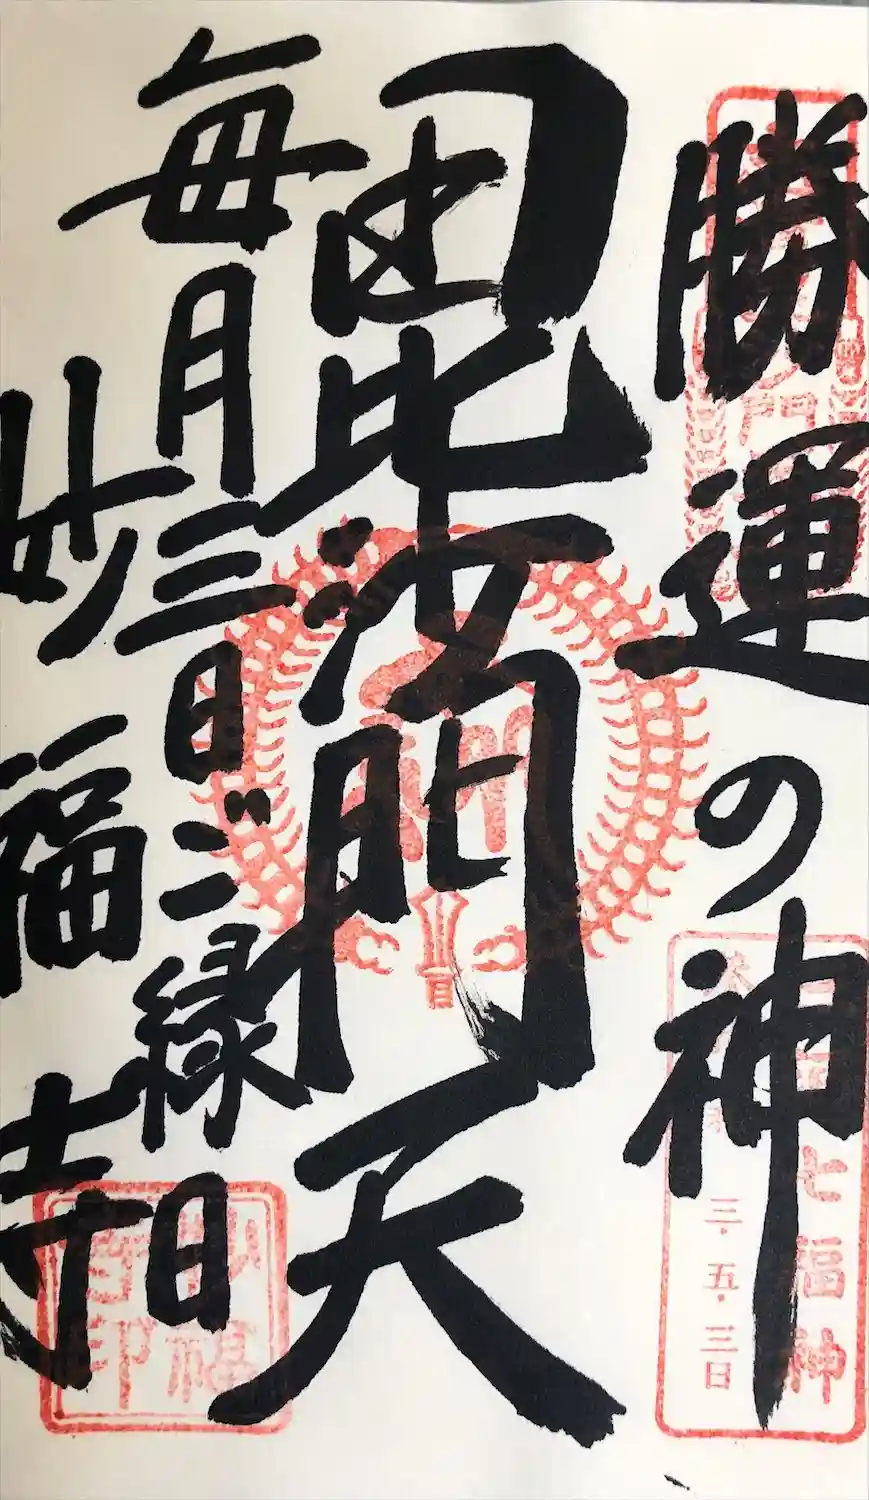 勝運の神
毘沙門天
毎月三日ご縁日
妙福寺
七福神
三・五・三日
妙福
寺印